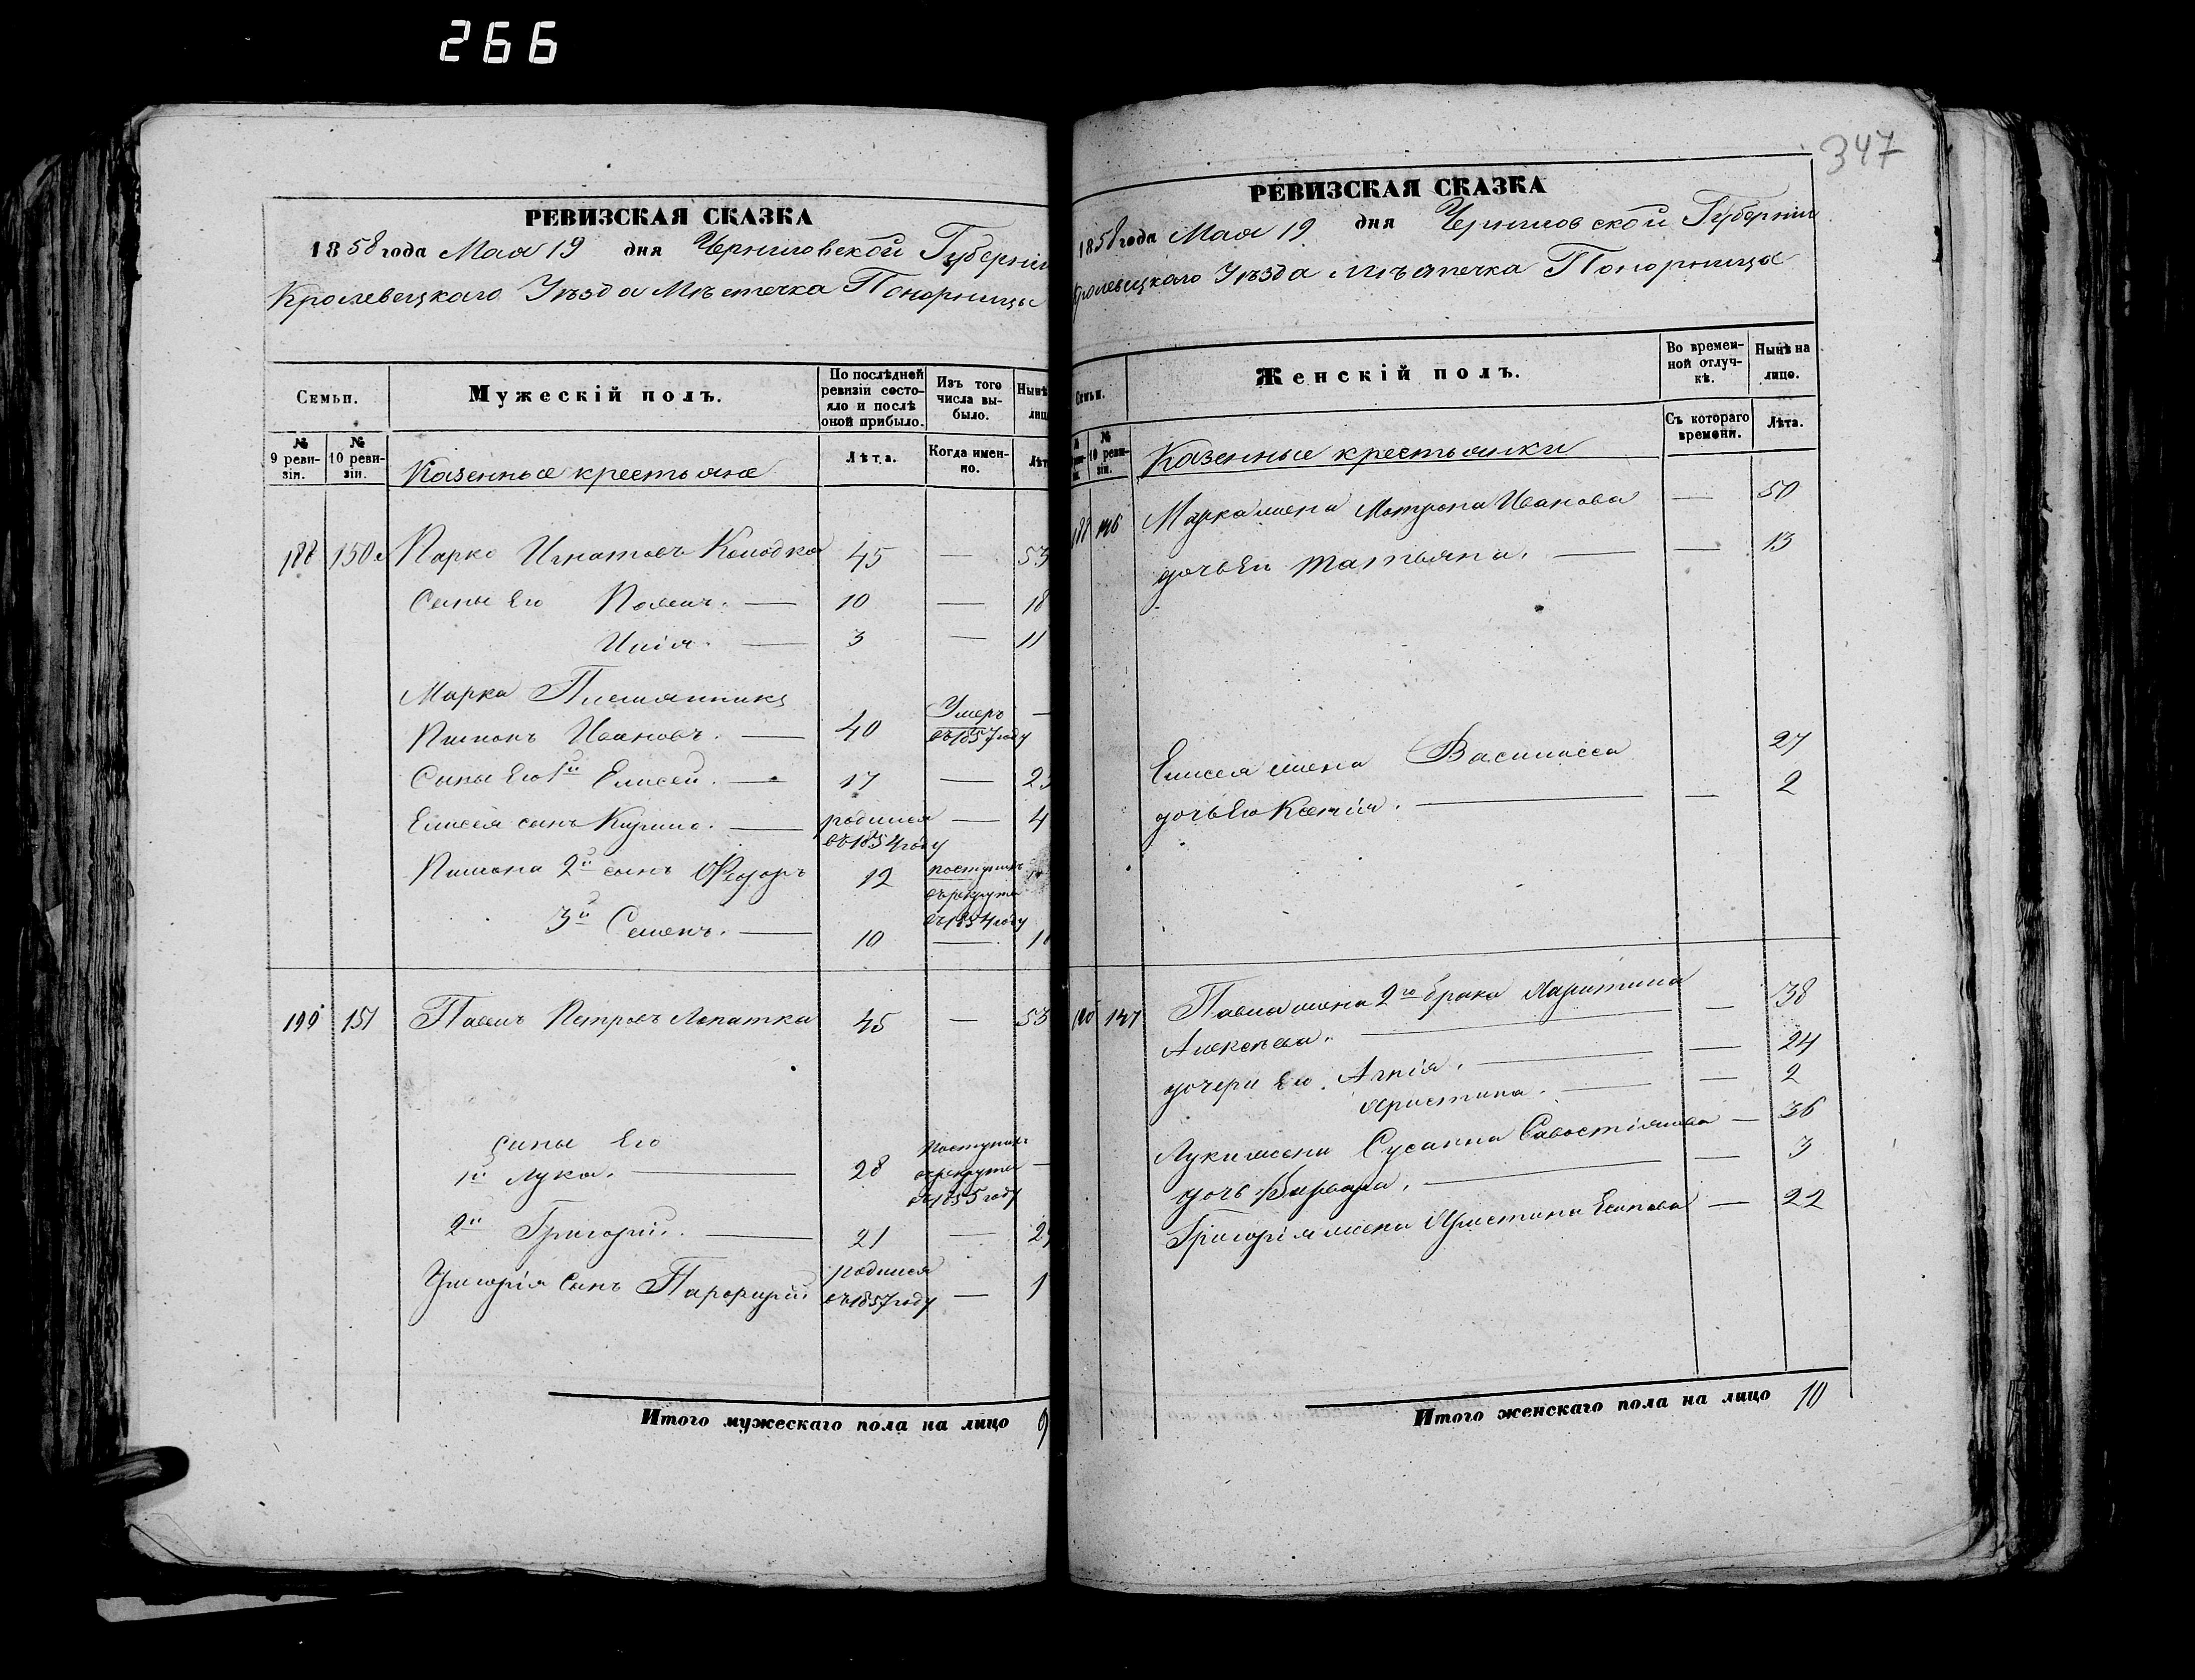 266
347
РЕВИЗСКАЯ СКАЗКА
1858 года Мая 19 дня Черниговской Губерніи
Кролевецкаго Уѣзда Мѣстечка Понорницы
Семьи.
Мужескій полъ.
По послѣдней ревизіи состояло и послѣ оной прибыло.
Изъ того числа выбыло.
Нынѣ
лиц
№ 9 ревизіи.
№ 10 ревизіи.
Казенные крестьяне
Лѣта.
Когда именно.
Лѣт
188 150 Марко Игнатовъ 45 — 53
Сыны Его — 10 — 18
Илія. — 3 — 11
Марка Племянникъ
Пименъ Ивановъ. — 40 Умеръ въ 1857 году —
Сыны Его 1й Елисей. — 17 — 2
Елисея сынъ — родился въ 1854 году — 4
Пимена 2й сынъ Ѳедоръ 12 поступилъ въ рекруты въ 1854 году
3й Семенъ. — 10 — 1
151 Павелъ Петровъ Лопатка 45 — 53
Сыны Его
1й Лука. — 28 Поступилъ въ рекруты въ 1855 году —
2й Григорій. — 21 — 2
Григорія Сынъ Парфирій родился въ 1857 году — 1
Итого мужескаго пола на лицо 9
РЕВИЗСКАЯ СКАЗКА
1858 года Мая 19 дня Черниговской Губерніи
Кролевецкаго Уѣзда Мѣстечка Понорницы
Семьи.
Женскій полъ.
Во временной отлучкѣ.
Нынѣ на лицо.
№ 10 ревизіи.
Казенные крестьянки
Съ котораго времени.
Лѣта.
188 146 Марка жена Мотрона Иванова — 50
дочь Ея Татьяна. — — 13
Елисея жена Василисса 27
дочь Его Ксенія. — — 2
147 Павла жена 2го брака Харитина
Алексѣева. — — 38
дочери Его. Агпія. — — 24
Христина. — — 2
Луки жена Сусанна Савостіянова — 36
дочь Варвара. — — 3
Григорія жена Христина Есипова — 22
Итого женскаго пола на лицо 10